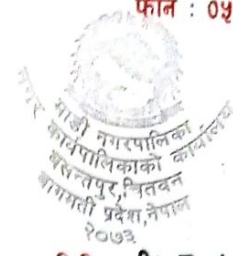 फोन : ०५
माडी नगरपालिका
नगर कार्यपालिकाको कार्यालय
बसन्तपुर, चितवन
बागमती प्रदेश, नेपाल
२०७३